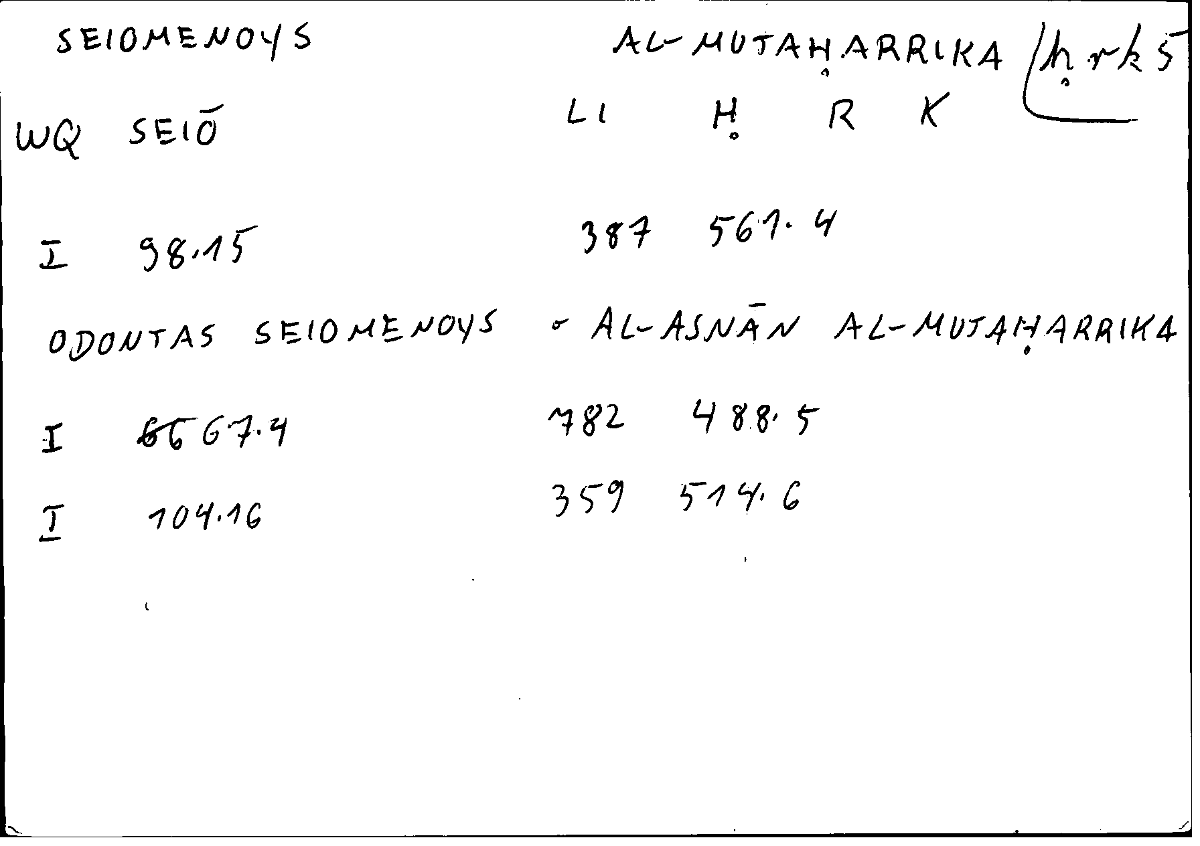 SEIOMENOYS AL-MUTAḤARRIKA ḥrk5
WQ SEIŌ LI Ḥ R K
I 98.15 387 561.4
ODONTAS SEIOMENOYS - AL-ASNĀN AL-MUTAḤARRIKA
I 67.4 782 488.5
I 104.16 359 514.6